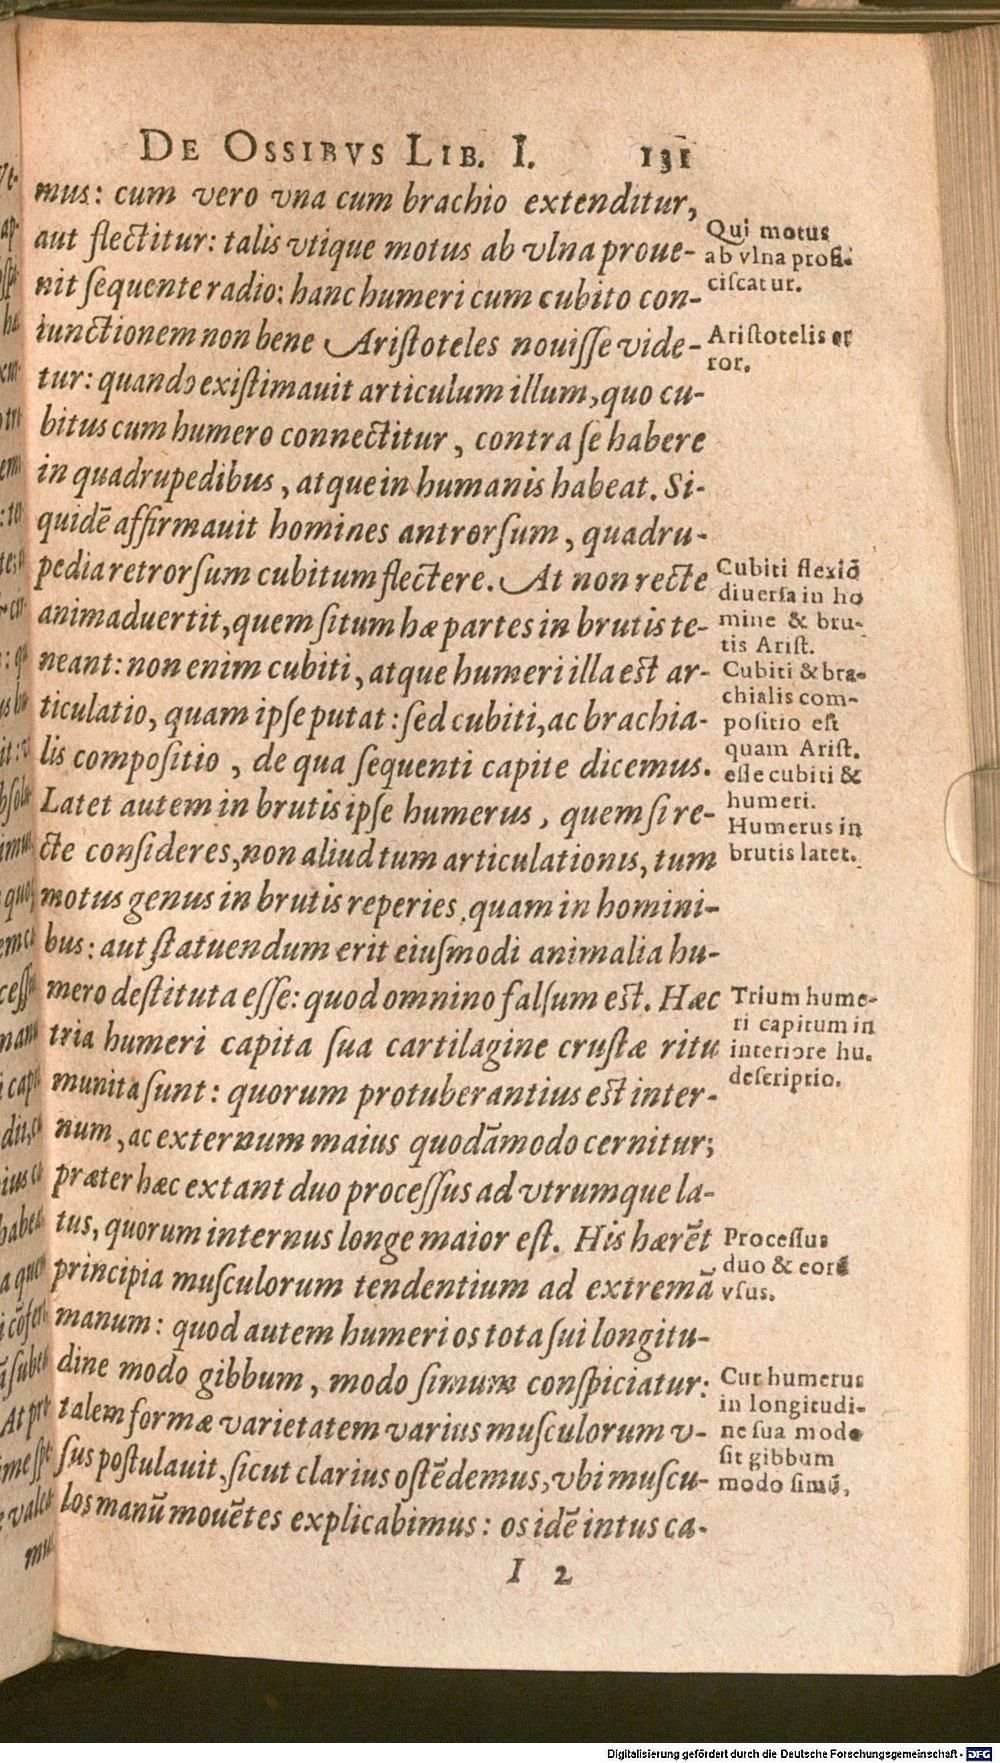 DE OSSIBVS LIB. I. 131
mus: cum vero vna cum brachio extenditur,
aut flectitur: talis vtique motus ab vlna proue-
nit sequente radio: hanc humeri cum cubito con-
iunctionem non bene Aristoteles nouisse vide-
tur: quando existimauit articulum illum, quo cu-
bitus cum humero connectitur, contra se habere
in quadrupedibus, atque in humanis habeat. Si-
quidē affirmauit homines antrorsum, quadru-
pedia retrorsum cubitum flectere. At non recte
animaduertit, quem situm hæ partes in brutis te-
neant: non enim cubiti, atque humeri illa est ar-
ticulatio, quam ipse putat: sed cubiti, ac brachia-
lis compositio, de qua sequenti capite dicemus.
Latet autem in brutis ipse humerus, quem si re-
cte consideres, non aliud tum articulationis, tum
motus genus in brutis reperies, quam in homini-
bus: aut statuendum erit eiusmodi animalia hu-
mero destituta esse: quod omnino falsum est. Hæc
tria humeri capita sua cartilagine crustæ ritu
munita sunt: quorum protuberantius est inter-
num, ac externum maius quodāmodo cernitur;
præter hæc extant duo processus ad vtrumque la-
tus, quorum internus longe maior est. His hærēt
principia musculorum tendentium ad extremā
manum: quod autem humeri os tota sui longitu-
dine modo gibbum, modo simum conspiciatur:
talem formæ varietatem varius musculorum v-
sus postulauit, sicut clarius ostēdemus, vbi muscu-
los manū mouētes explicabimus: os idē intus ca-
I 2
Qui motus
ab vlna profi-
ciscatur.
Aristotelis er
ror.
Cubiti flexiō
diuersa in ho
mine & bru-
tis Arist.
Cubiti & bra-
chialis com-
positio est
quam Arist.
esse cubiti &
humeri.
Humerus in
brutis latet.
Trium hume-
ri capitum in
interiore hu.
descriptio.
Processus
duo & eorū
vsus.
Cur humerus
in longitudi-
ne sua modo
sit gibbum
modo simū.
Digitalisierung gefördert durch die Deutsche Forschungsgemeinschaft - DFG